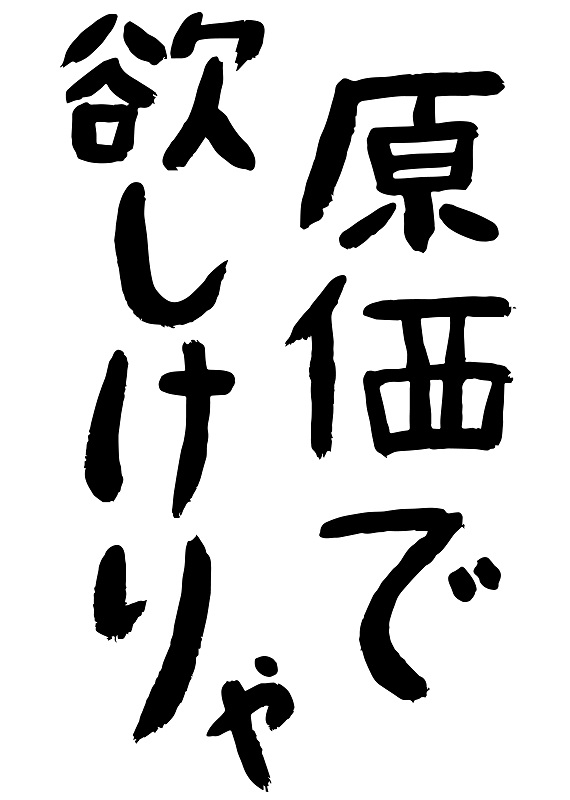 原価で
欲しけりゃ